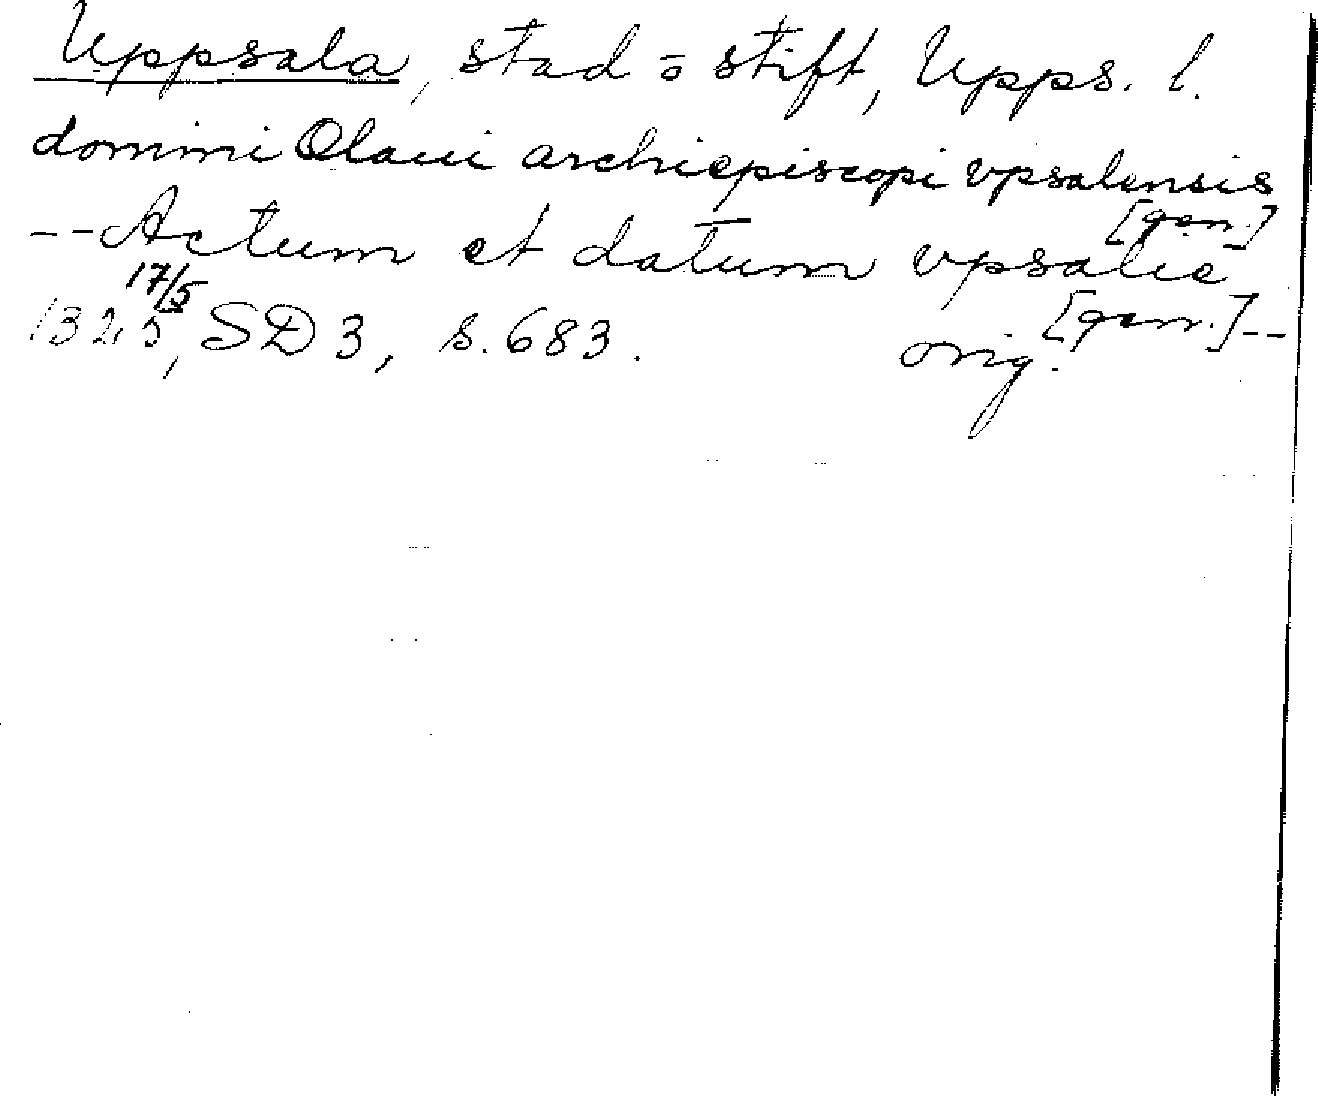 Uppsala, stad o stift, Upps. l.
domini Olaui archiepiscopi vpsalensis
[gen.]
--Actum et datum vpsalie
17/5
[gen.]--
1325, SD 3, s. 683. orig.